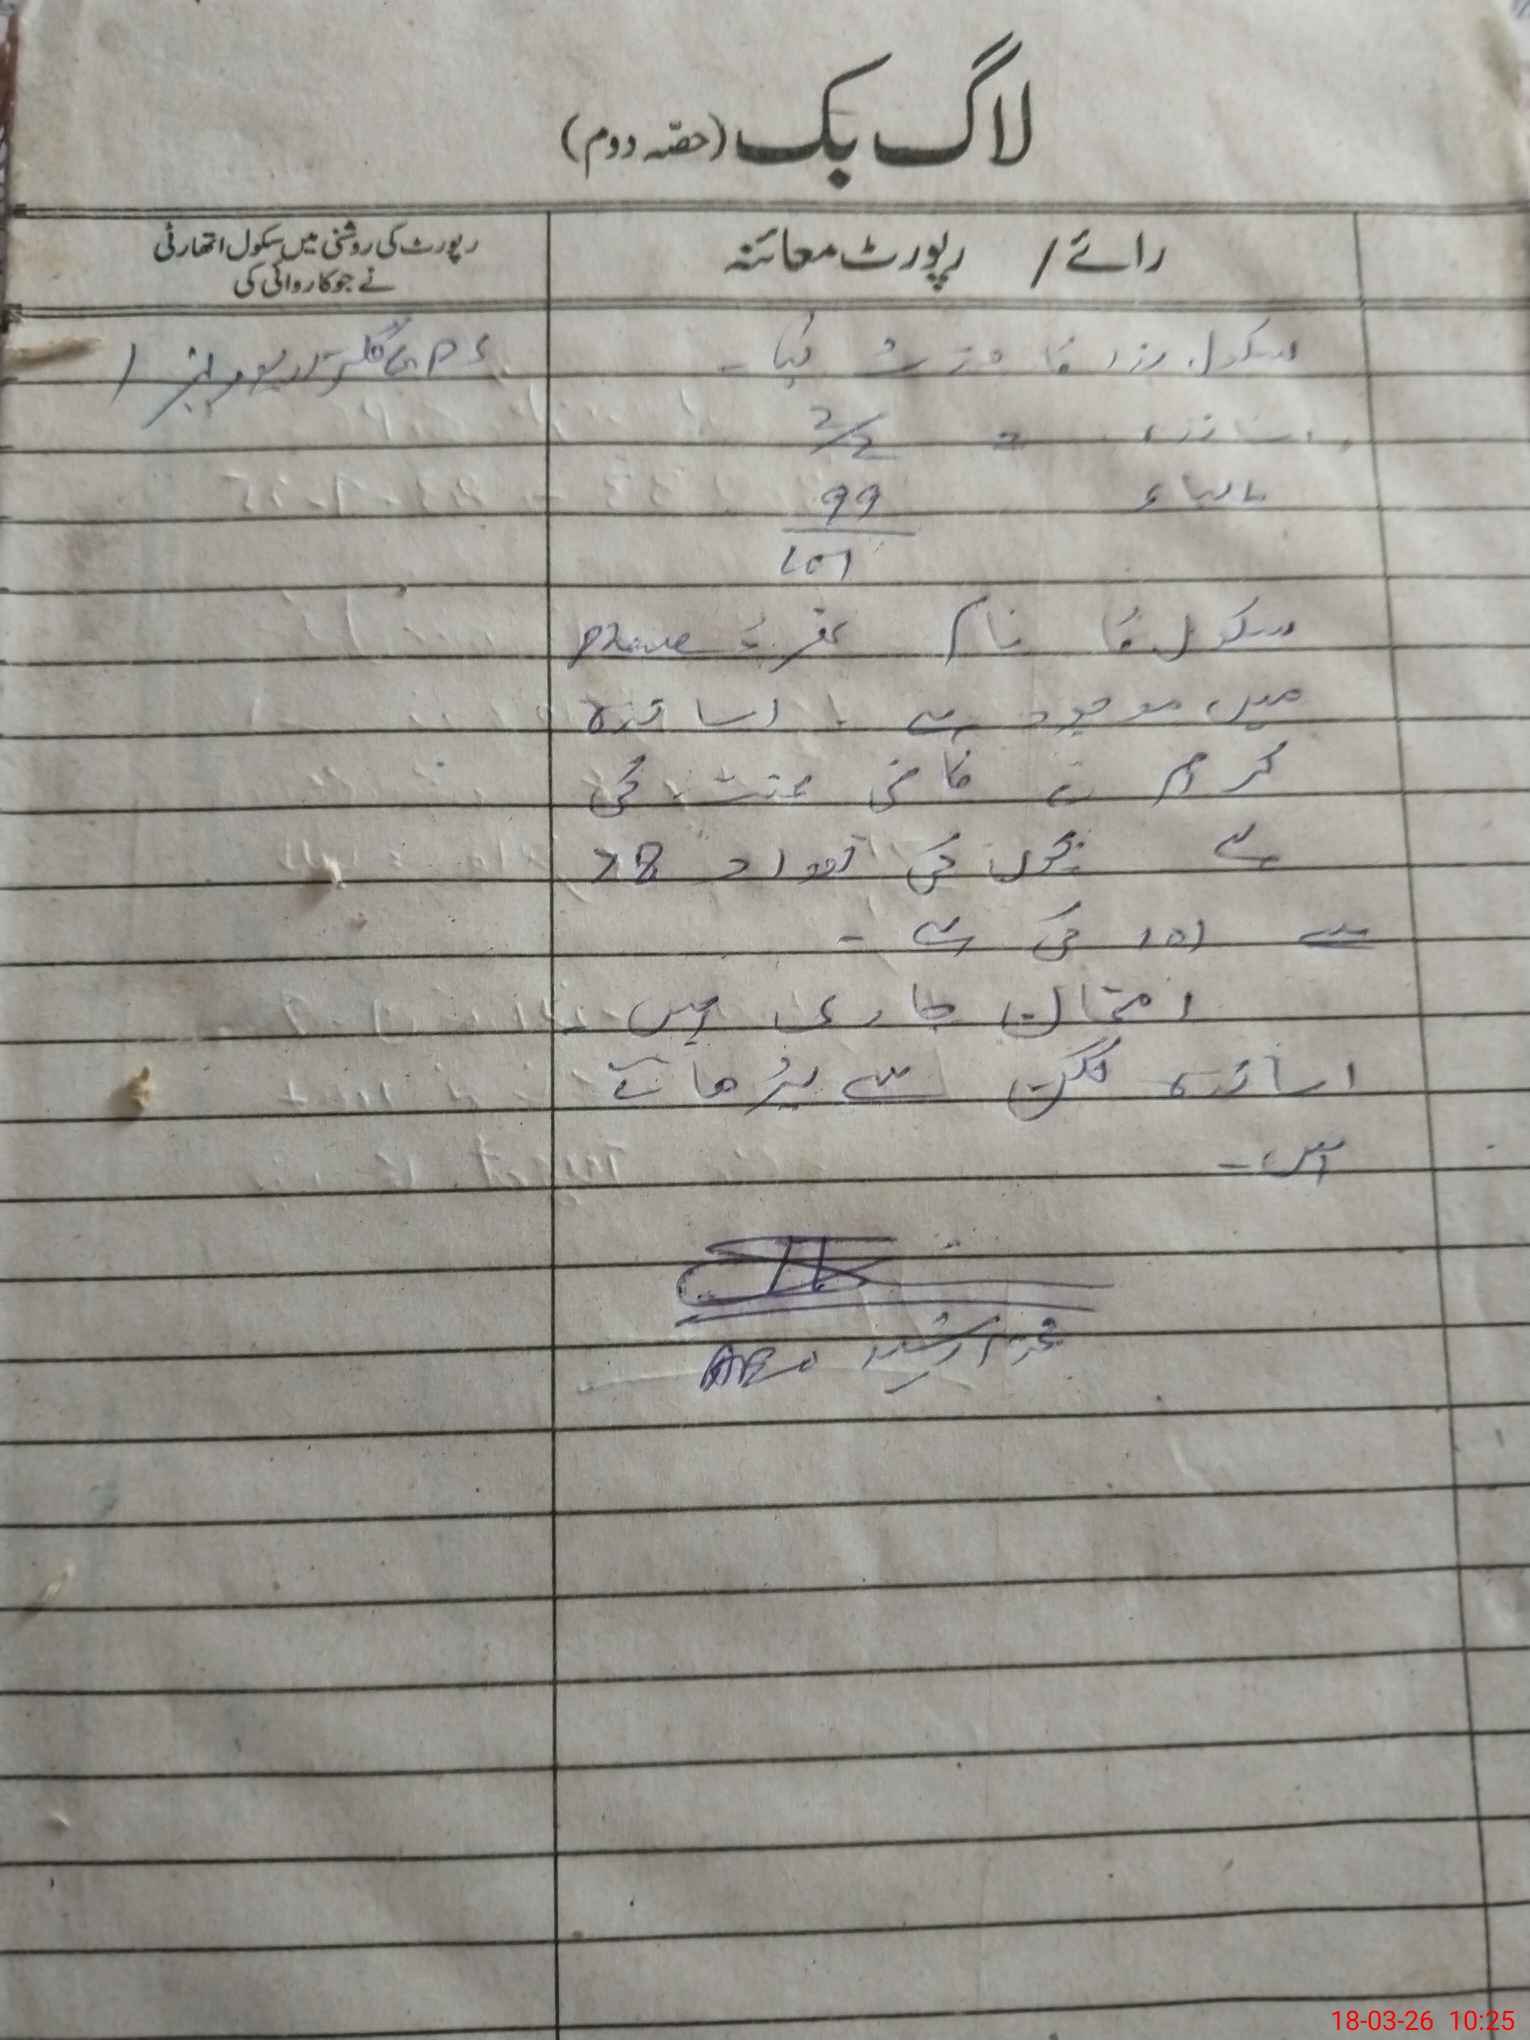 لاگ بک (حصّہ دوم)
رائے / رپورٹ معائنہ
رپورٹ کی روشنی میں سکول اتھارٹی
نے جو کاروائی کی
سکول ہذا کا وزٹ کیا -
اساتذہ = 2/2
طلباء 99
101
سکول کا نام phase
میں موجود ہے ۔ اساتذہ
کرام نے کافی محنت کی
ہے بچوں کی تعداد 78
سے 101 کی ہے -
امتحان جاری ہیں -
اساتذہ لگن سے پڑھاتے
ہیں -
AEO
18-03-26 10:25